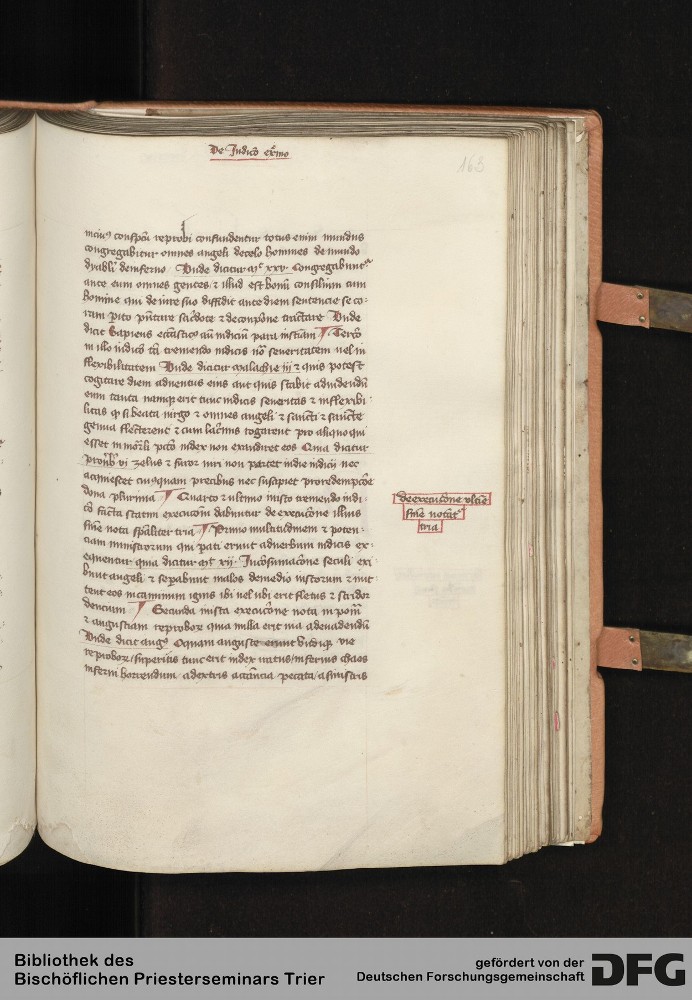 De Judicio extremo
163
cuius conspectu reprobi confundentur totus enim mundus
congregabitur omnes angeli de celo homines de mundo
dyaboli de inferno Unde dicitur mt xxv Congregabuntur
ante eum omnes gentes et illud est boni consilium cum
homine qui de iure suo diffidit ante diem sentencie se co-
ram perito sacerdote et decomponere tractare Unde
dicit Sapiens ecclesiastico ante iudicium para iusticiam Tercio
in illo iudicio tam tremendo iudicis severitatem vel in
flexibilitatem Unde dicitur malachie iii et quis potest
cogitare diem adventus eius aut quis stabit ad videndum
eum tanta namque erit tunc iudicis severitas et inflexibi-
litas quod si beata virgo et omnes angeli et sancti et sancte
genua flecterent et cum lacrimis rogarent pro aliquo qui
esset in mortali peccato iudex non exaudiret eos Quia dicitur
proverb vi zelus et furor viri non parcet in die iudicii nec
acquiescet cuiusquam precibus nec suscipiet pro redempcione
dona plurima Quarto et ultimo in isto tremendo iudi-
cio statim execucioni dabuntur de execucione illius
sentencie nota specialiter tria Primo multitudinem et poten-
ciam ministrorum qui parati erunt ad verbum iudicis ex-
equentur quia dicitur mt xii In consumacione seculi exi-
bunt angeli et separabunt malos de medio iustorum et mit-
tent eos in caminum ignis ibi vel ubi erit fletus et stridor
dencium Secunda in ista execucione nota
et augustiam reproborum quia nulla erit via ad evadendum
Unde dicit augus O quam anguste erunt undique vie
reproborum superius tunc erit iudex iratus inferius chaos
inferni horrendum a dextris accusancia peccata a sinistris
de execucione ultime
sentencie notantur
tria
Bibliothek des
Bischöflichen Priesterseminars Trier
gefördert von der
Deutschen Forschungsgemeinschaft
DFG